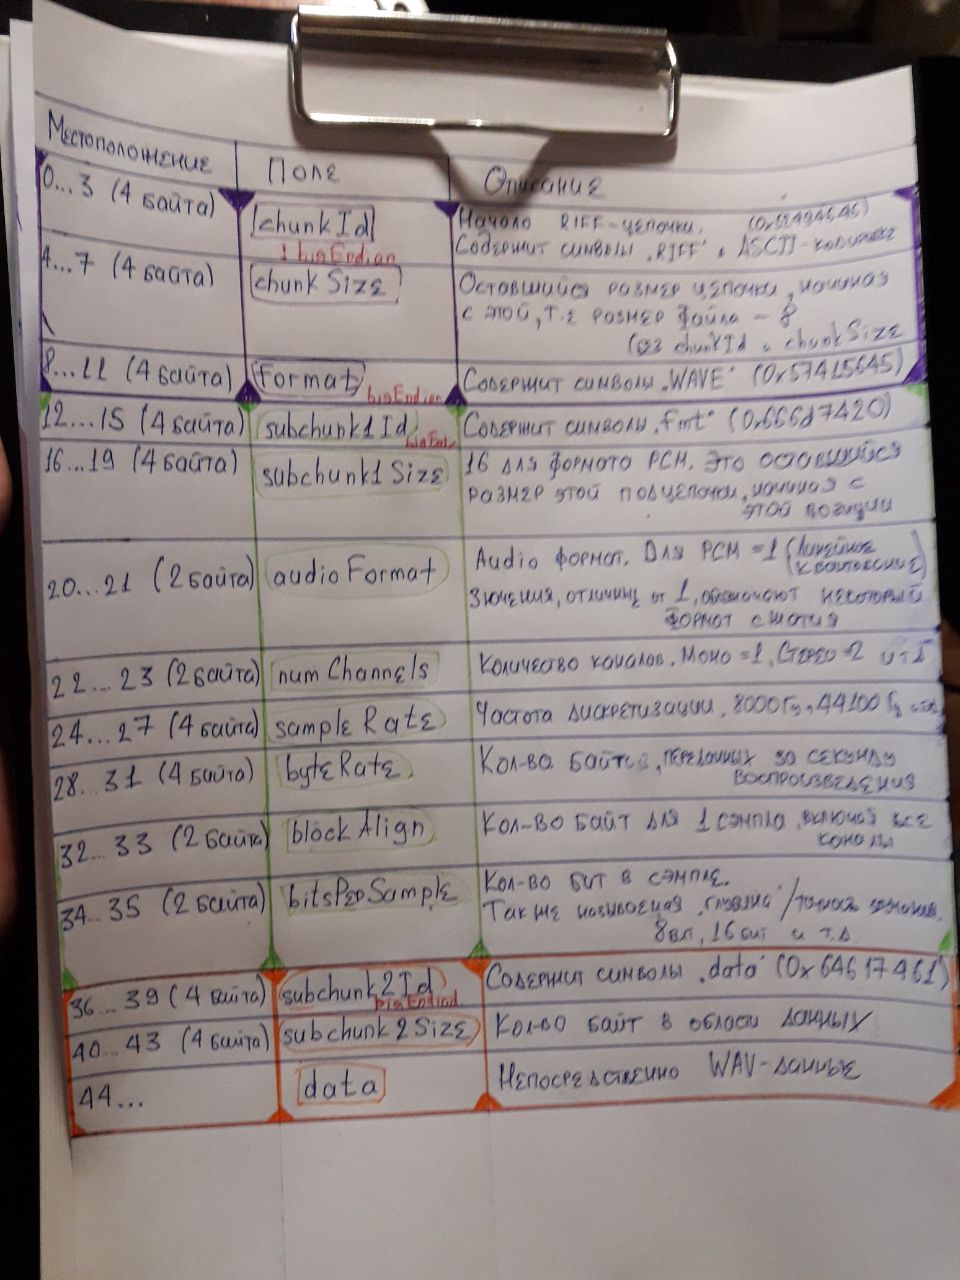 Местоположение Поле Описание
0...3 (4 байта) chunkId Начало RIFF-цепочки.
Содержит символы "RIFF" в ASCII-кодировке
bigEndian
4...7 (4 байта) chunkSize Оставшийся размер цепочки, начиная
с этой, т.е размер файла - 8
(без chunkId и chunkSize
8...11 (4 байта) format Содержит символы "WAVE" (0x57415645)
bigEndian
12...15 (4 байта) subchunk1Id Содержит символы "fmt" (0x666d7420)
bigEndian
16...19 (4 байта) subchunk1Size 16 для формата PCM. Это оставшийся
размер этой подцепочки, начиная с
этой позиции
20...21 (2 байта) audioFormat Audio формат. Для PCM = 1 (Линейное
квантование)
Значения, отличные от 1, обозначают некоторый
формат сжатия
22...23 (2 байта) numChannels Количество каналов. Моно = 1, Стерео = 2 и т.д
24...27 (4 байта) sampleRate Частота дискретизации, 8000 Гц, 44100 Гц
28...31 (4 байта) byteRate Кол-во байтов, переданных за секунду
воспроизведения
32...33 (2 байта) blockAlign Кол-во байт для 1 сэмпла, включая все
каналы
34...35 (2 байта) bitsPerSample Кол-во бит в сэмпле.
Так же называемая глубина / точность
16 бит и т.д
36...39 (4 байта) subchunk2Id Содержит символы "data" (0x64617461)
bigEndian
40...43 (4 байта) subchunk2Size Кол-во байт в области данных
44... data Непосредственно WAV-данные